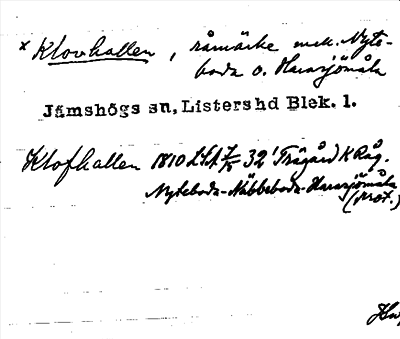 x Klovhallen, råmärke mel. Nyte-
boda o. Harasjömåla
Jämshögs sn, Listershd Blek. l.
Klofhallen 1810 LSA 32 Trägård K Råg.
Nyteboda-Näbboboda-Harasjömåla
(prot.)